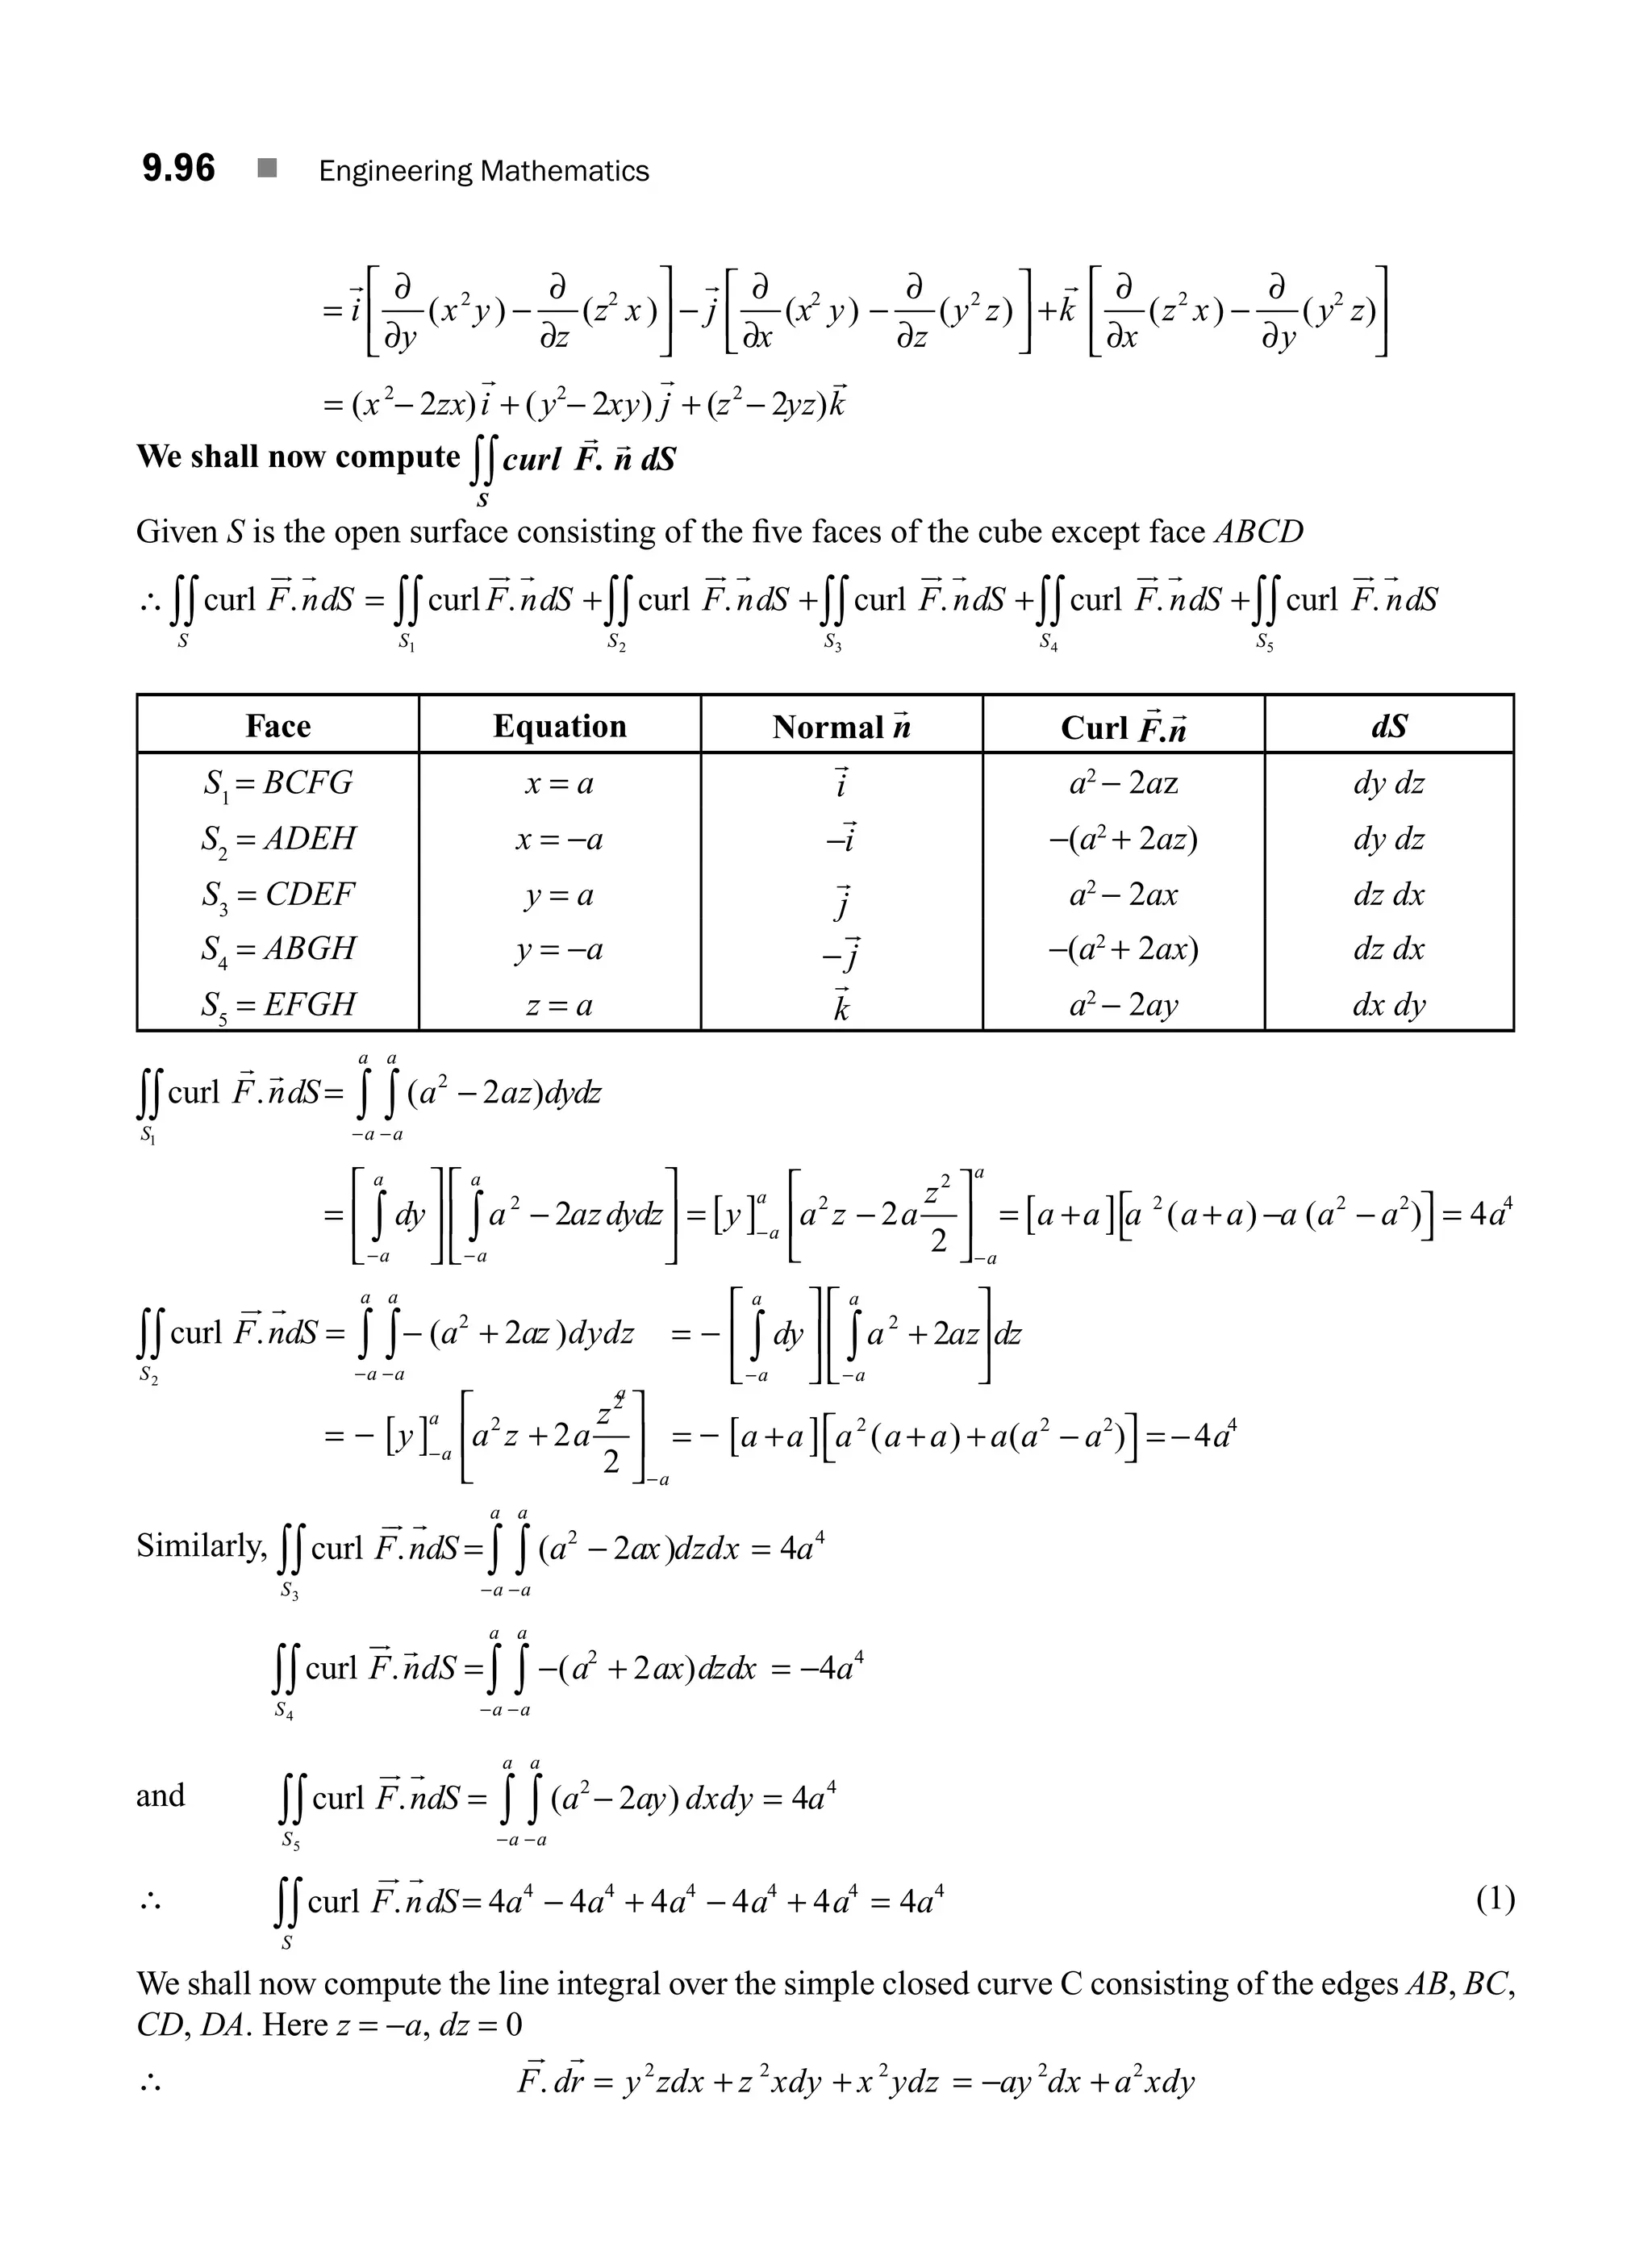 9.96 ■ Engineering Mathematics
= i⃗ [∂/∂y (x²y) − ∂/∂z (z²x)] − j⃗ [∂/∂x (x²y) − ∂/∂z (y²z)] + k⃗ [∂/∂x (z²x) − ∂/∂y (y²z)]
= (x² − 2zx) i⃗ + (y² − 2xy) j⃗ + (z² − 2yz) k⃗
We shall now compute ∬_S curl F⃗. n⃗ dS
Given S is the open surface consisting of the five faces of the cube except face ABCD
∴ ∬_S curl F⃗.n⃗dS = ∬_S₁ curl F⃗.n⃗dS + ∬_S₂ curl F⃗.n⃗dS + ∬_S₃ curl F⃗.n⃗dS + ∬_S₄ curl F⃗.n⃗dS + ∬_S₅ curl F⃗.n⃗dS
Face Equation Normal n⃗ Curl F⃗.n⃗ dS
S₁ = BCFG x = a i⃗ a² – 2az dy dz
S₂ = ADEH x = –a –i⃗ –(a² + 2az) dy dz
S₃ = CDEF y = a j⃗ a² – 2ax dz dx
S₄ = ABGH y = –a –j⃗ –(a² + 2ax) dz dx
S₅ = EFGH z = a k⃗ a² – 2ay dx dy
∬_S₁ curl F⃗.n⃗dS = ∫_{−a}^{a} ∫_{−a}^{a} (a² − 2az)dydz
= [∫_{−a}^{a} dy][∫_{−a}^{a} a² − 2az dydz] = [y]_{−a}^{a} [a²z − 2a z²/2]_{−a}^{a} = [a + a][a²(a + a) − a(a² − a²)] = 4a⁴
∬_S₂ curl F⃗.n⃗dS = ∫_{−a}^{a} ∫_{−a}^{a} −(a² + 2az)dydz = −[∫_{−a}^{a} dy][∫_{−a}^{a} a² + 2az]dz
= −[y]_{−a}^{a} [a²z + 2a z²/2]_{−a}^{a} = −[a + a][a²(a + a) + a(a² − a²)] = −4a⁴
Similarly, ∬_S₃ curl F⃗.n⃗dS = ∫_{−a}^{a} ∫_{−a}^{a} (a² − 2ax)dzdx = 4a⁴
∬_S₄ curl F⃗.n⃗dS = ∫_{−a}^{a} ∫_{−a}^{a} −(a² + 2ax)dzdx = −4a⁴
and ∬_S₅ curl F⃗.n⃗dS = ∫_{−a}^{a} ∫_{−a}^{a} (a² − 2ay) dxdy = 4a⁴
∴ ∬_S curl F⃗.n⃗dS = 4a⁴ − 4a⁴ + 4a⁴ − 4a⁴ + 4a⁴ = 4a⁴ (1)
We shall now compute the line integral over the simple closed curve C consisting of the edges AB, BC,
CD, DA. Here z = –a, dz = 0
∴ F⃗. dr⃗ = y²zdx + z²xdy + x²ydz = −ay²dx + a²xdy